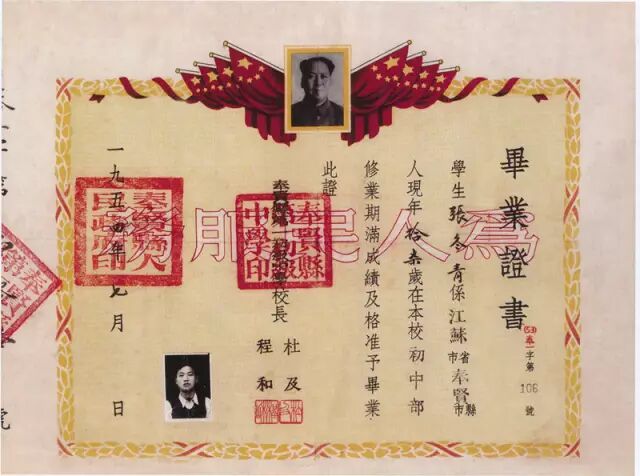 畢業證書
(53)奉一字第106號
學生張冬青係江蘇省市奉賢縣市
人現年拾柒歲在本校初中部
修業期滿成績及格准予畢業
此證
校長 杜及
程和
一九五四年七月 日
爲人民服務
奉賢縣初級中學印
奉賢縣人民政府印